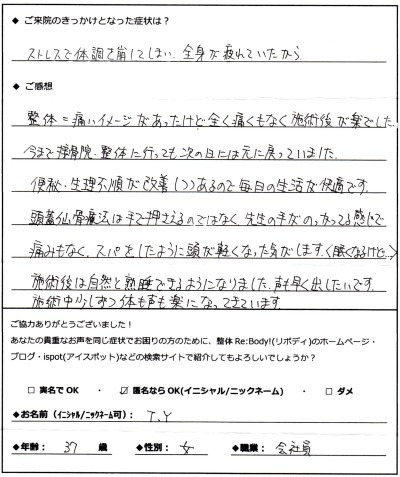 ◆ ご来院のきっかけとなった症状は？
ストレスで体調を崩してしまい、全身が疲れていたから
◆ ご感想
整体＝痛いイメージがあったけど全く痛くもなく施術後が楽でした。
今まで接骨院・整体に行っても次の日には元に戻っていました。
便秘・生理不順が改善しつつあるので毎日の生活が快適です。
頭蓋仙骨療法は手で押さえるのではなく、先生の手がのっかってる感じで
痛みもなく、スパをしたように頭が軽くなった気がします（眠くなるけど…）
施術後は自然と熟睡できるようになりました。声も早く出したいです。
施術中少しずつ体も声も楽になってきています。
ご協力ありがとうございました！
あなたの貴重なお声を同じ症状でお困りの方のために、整体 Re:Body!(リボディ)のホームページ・
ブログ・ispot(アイスポット)などの検索サイトで紹介してもよろしいでしょうか？
□ 実名で OK ・ ☑ 匿名なら OK(イニシャル/ニックネーム) ・ □ ダメ
◆お名前（イニシャル/ニックネーム可）： T.Y
◆年齢： 37 歳 ◆性別： 女 ◆職業： 会社員